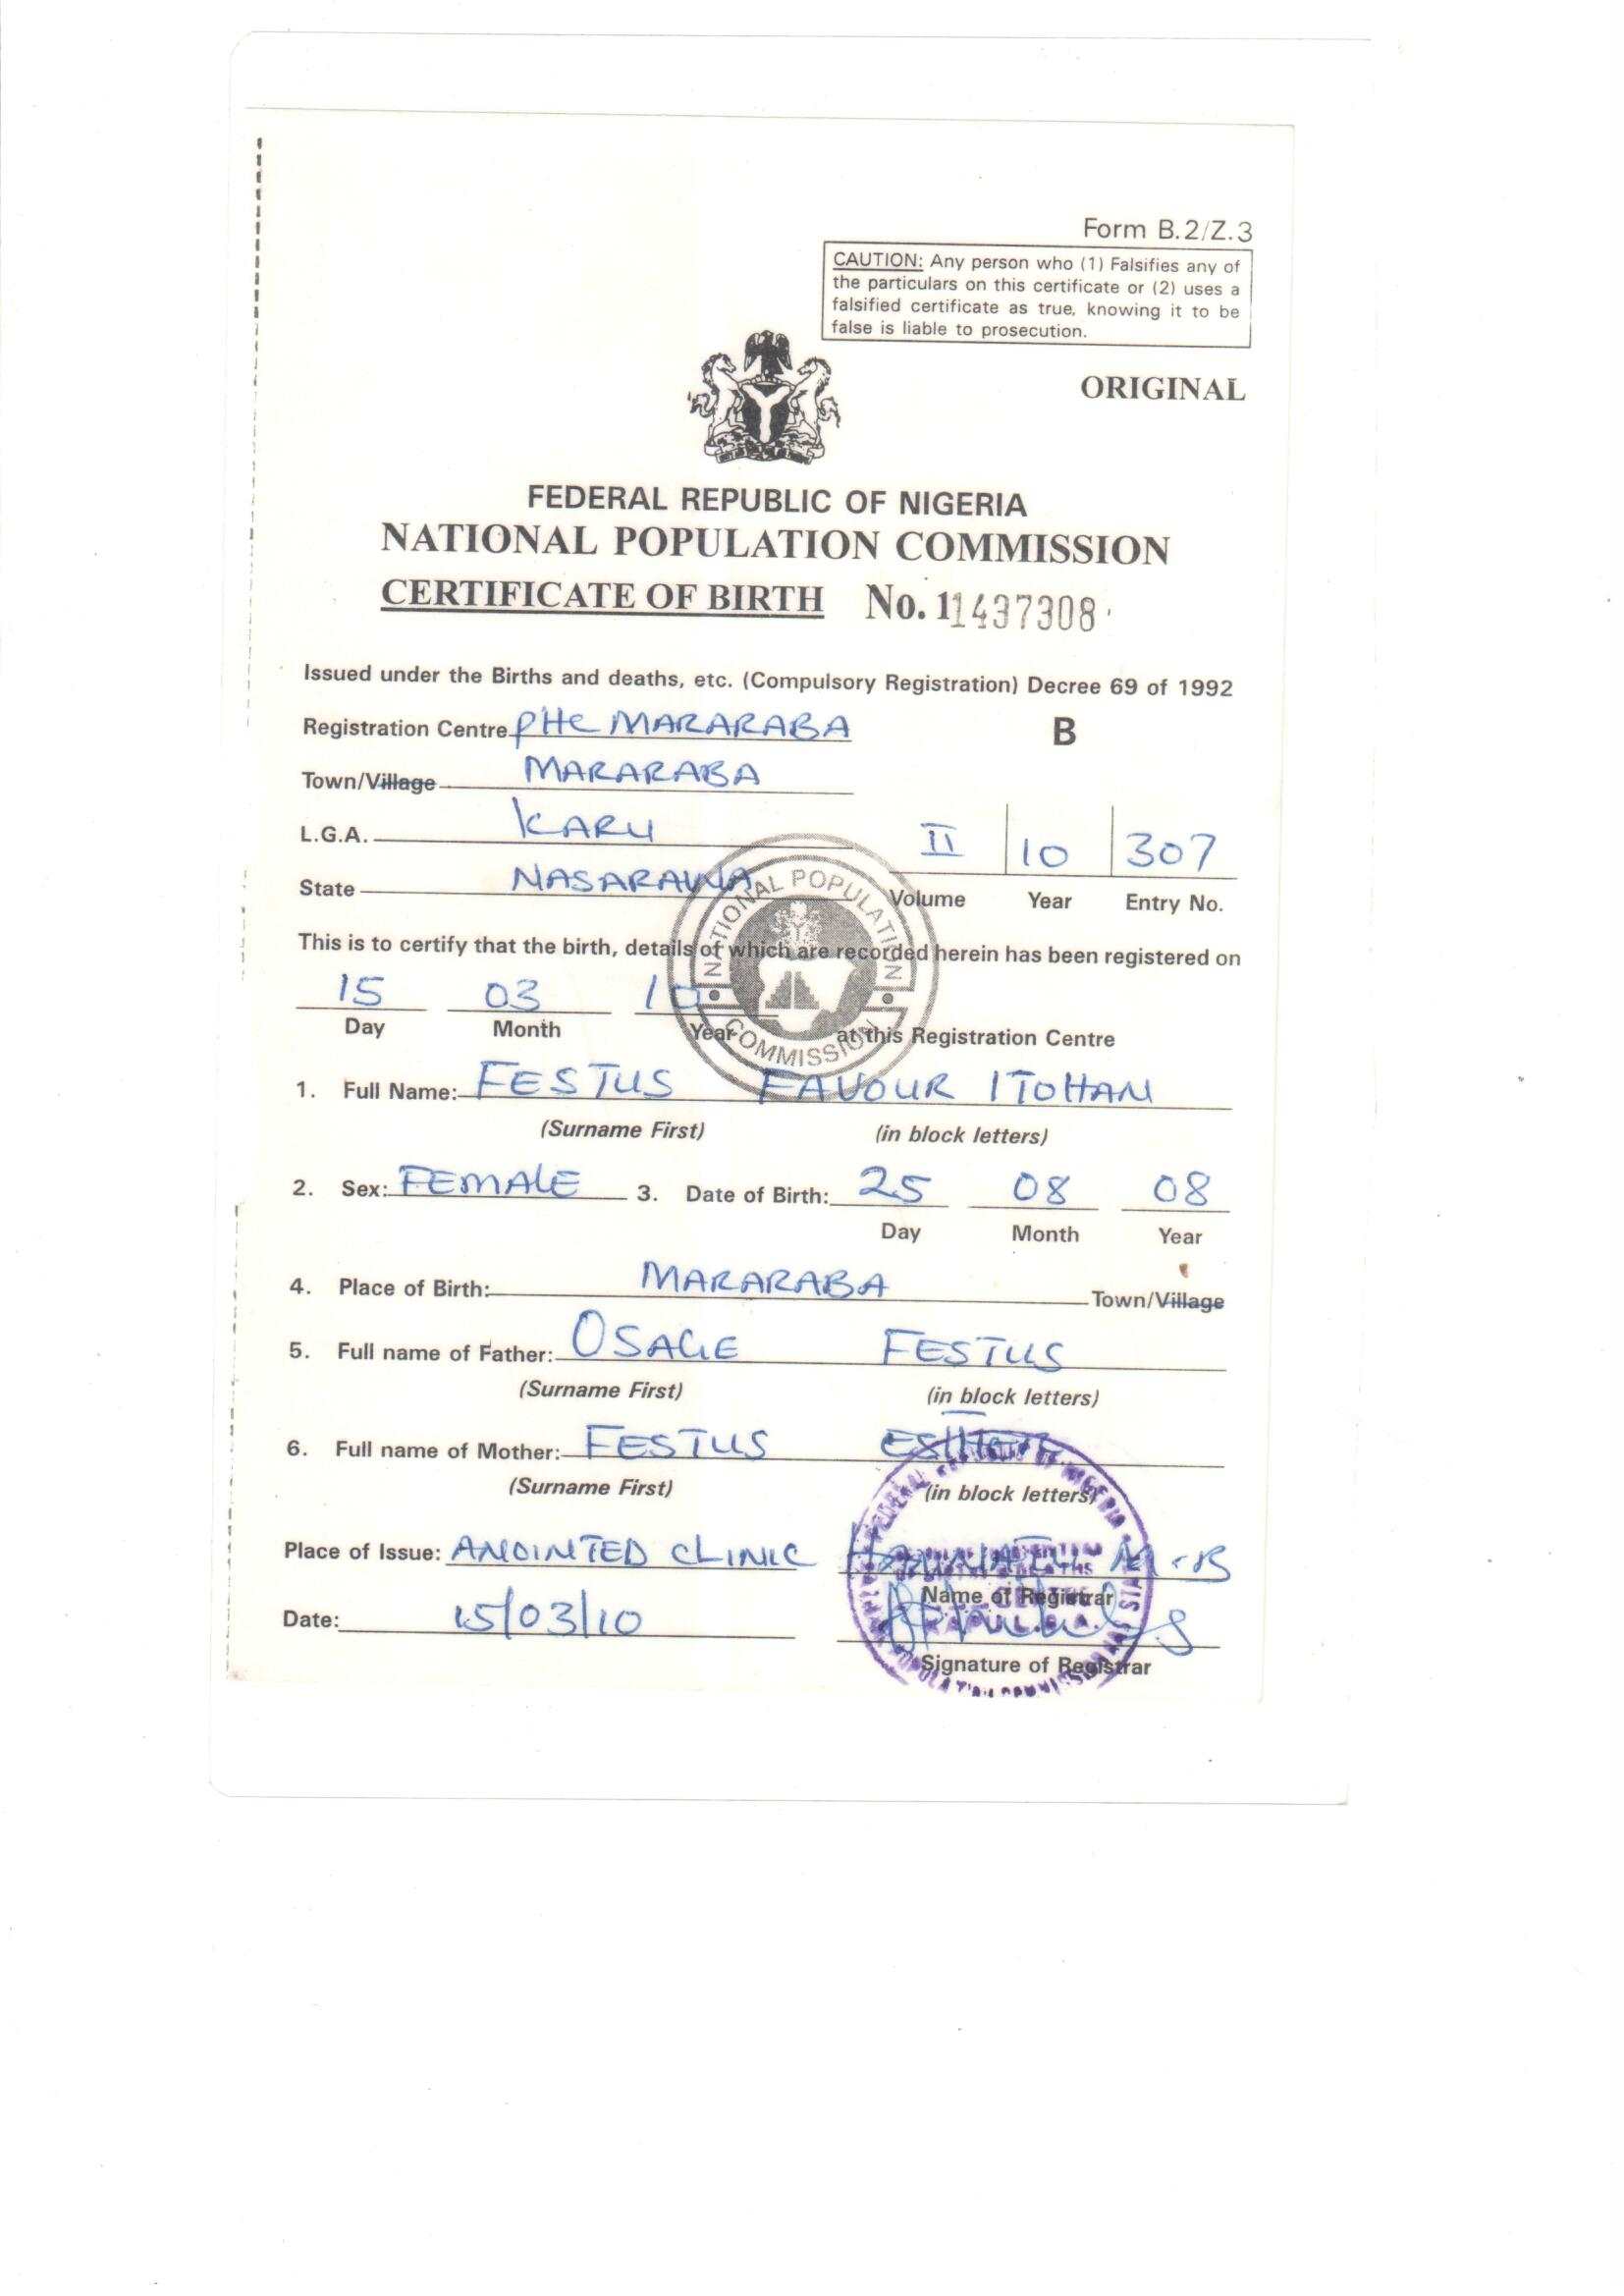 Form B.2/Z.3
CAUTION: Any person who (1) Falsifies any of
the particulars on this certificate or (2) uses a
falsified certificate as true, knowing it to be
false is liable to prosecution.
ORIGINAL
FEDERAL REPUBLIC OF NIGERIA
NATIONAL POPULATION COMMISSION
CERTIFICATE OF BIRTH No. 11437308
Issued under the Births and deaths, etc. (Compulsory Registration) Decree 69 of 1992
Registration Centre PHC MARARABA B
Town/Village MARARABA
L.G.A. KARU II 10 307
State NASARAWA Volume Year Entry No.
NATIONAL POPULATION COMMISSION
This is to certify that the birth, details of which are recorded herein has been registered on
15 03 10
Day Month Year at this Registration Centre
1. Full Name: FESTUS FAVOUR ITOHAN
(Surname First) (in block letters)
2. Sex: FEMALE 3. Date of Birth: 25 08 08
Day Month Year
4. Place of Birth: MARARABA Town/Village
5. Full name of Father: OSAGIE FESTUS
(Surname First) (in block letters)
6. Full name of Mother: FESTUS ESTHER
(Surname First) (in block letters)
Place of Issue: ANOINTED CLINIC M.B
Name of Registrar
Date: 15/03/10
Signature of Registrar